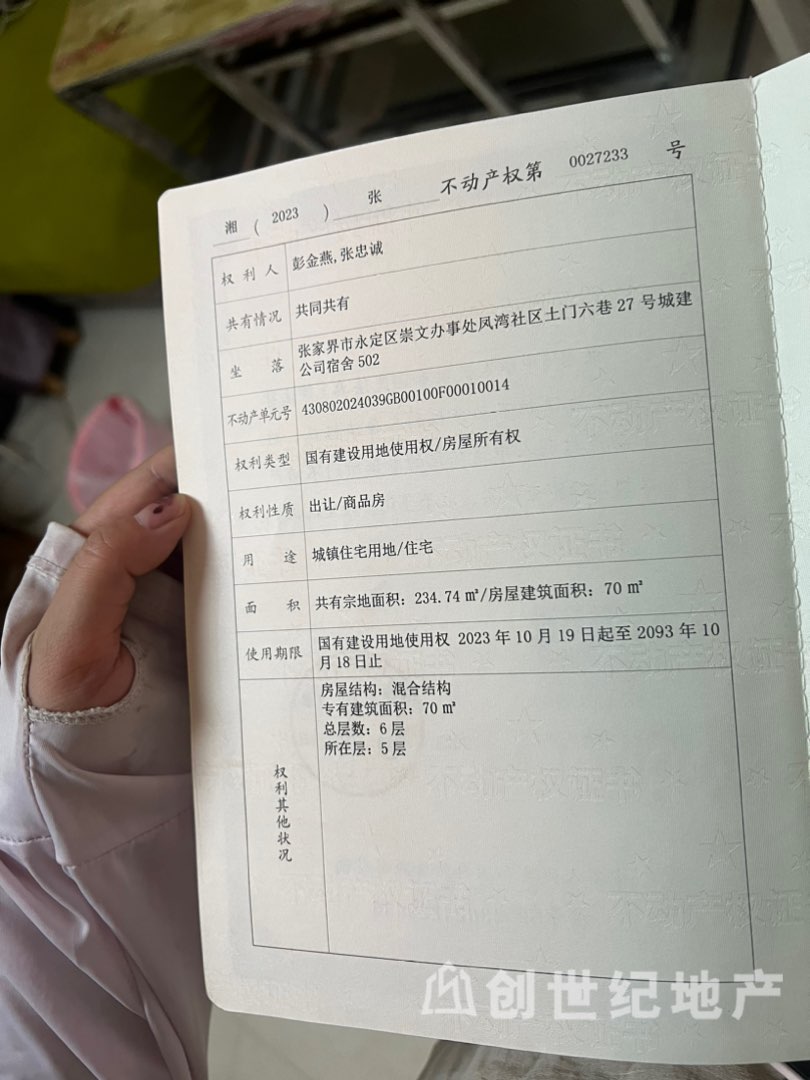 湘 ( 2023 ) 张 不动产权第 0027233 号
权利人 彭金燕,张忠诚
共有情况 共同共有
坐落 张家界市永定区崇文办事处凤湾社区土门六巷 27 号城建
公司宿舍 502
不动产单元号 430802024039GB00100F00010014
权利类型 国有建设用地使用权/房屋所有权
权利性质 出让/商品房
用途 城镇住宅用地/住宅
面积 共有宗地面积：234.74 ㎡/房屋建筑面积：70 ㎡
使用期限 国有建设用地使用权 2023 年 10 月 19 日起至 2093 年 10
月 18 日止
权利其他状况 房屋结构：混合结构
专有建筑面积：70 ㎡
总层数：6 层
所在层：5 层
创世纪地产